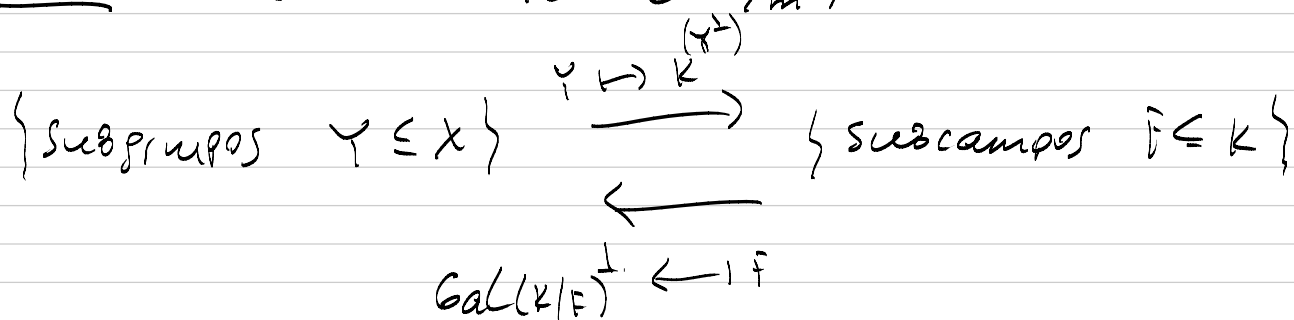 Y ↦ K^(Y^⊥)
{ Subgrupos Y ≤ X } ⟶ { subcampos F ⊆ K }
⟵
Gal(K/F)^⊥ ⟵| F